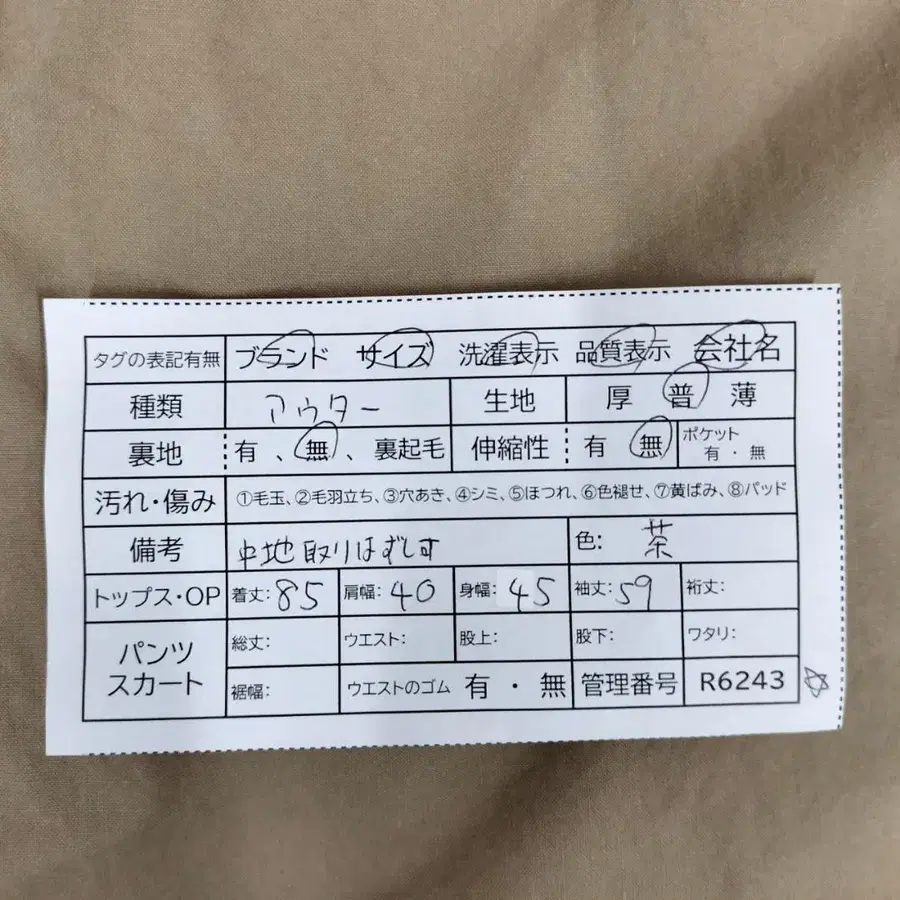 タグの表記有無 ブランド サイズ 洗濯表示 品質表示 会社名
種類 アウター 生地 厚 普 薄
裏地 有 、無、裏起毛 伸縮性 有 無 ポケット 有・無
汚れ・傷み ①毛玉、②毛羽立ち、③穴あき、④シミ、⑤ほつれ、⑥色褪せ、⑦黄ばみ、⑧パッド
備考 中地取りはずしす 色: 茶
トップス・OP 着丈:85 肩幅:40 身幅:45 袖丈:59 裄丈:
パンツ スカート 総丈: ウエスト: 股上: 股下: ワタリ:
裾幅: ウエストのゴム 有・無 管理番号 R6243